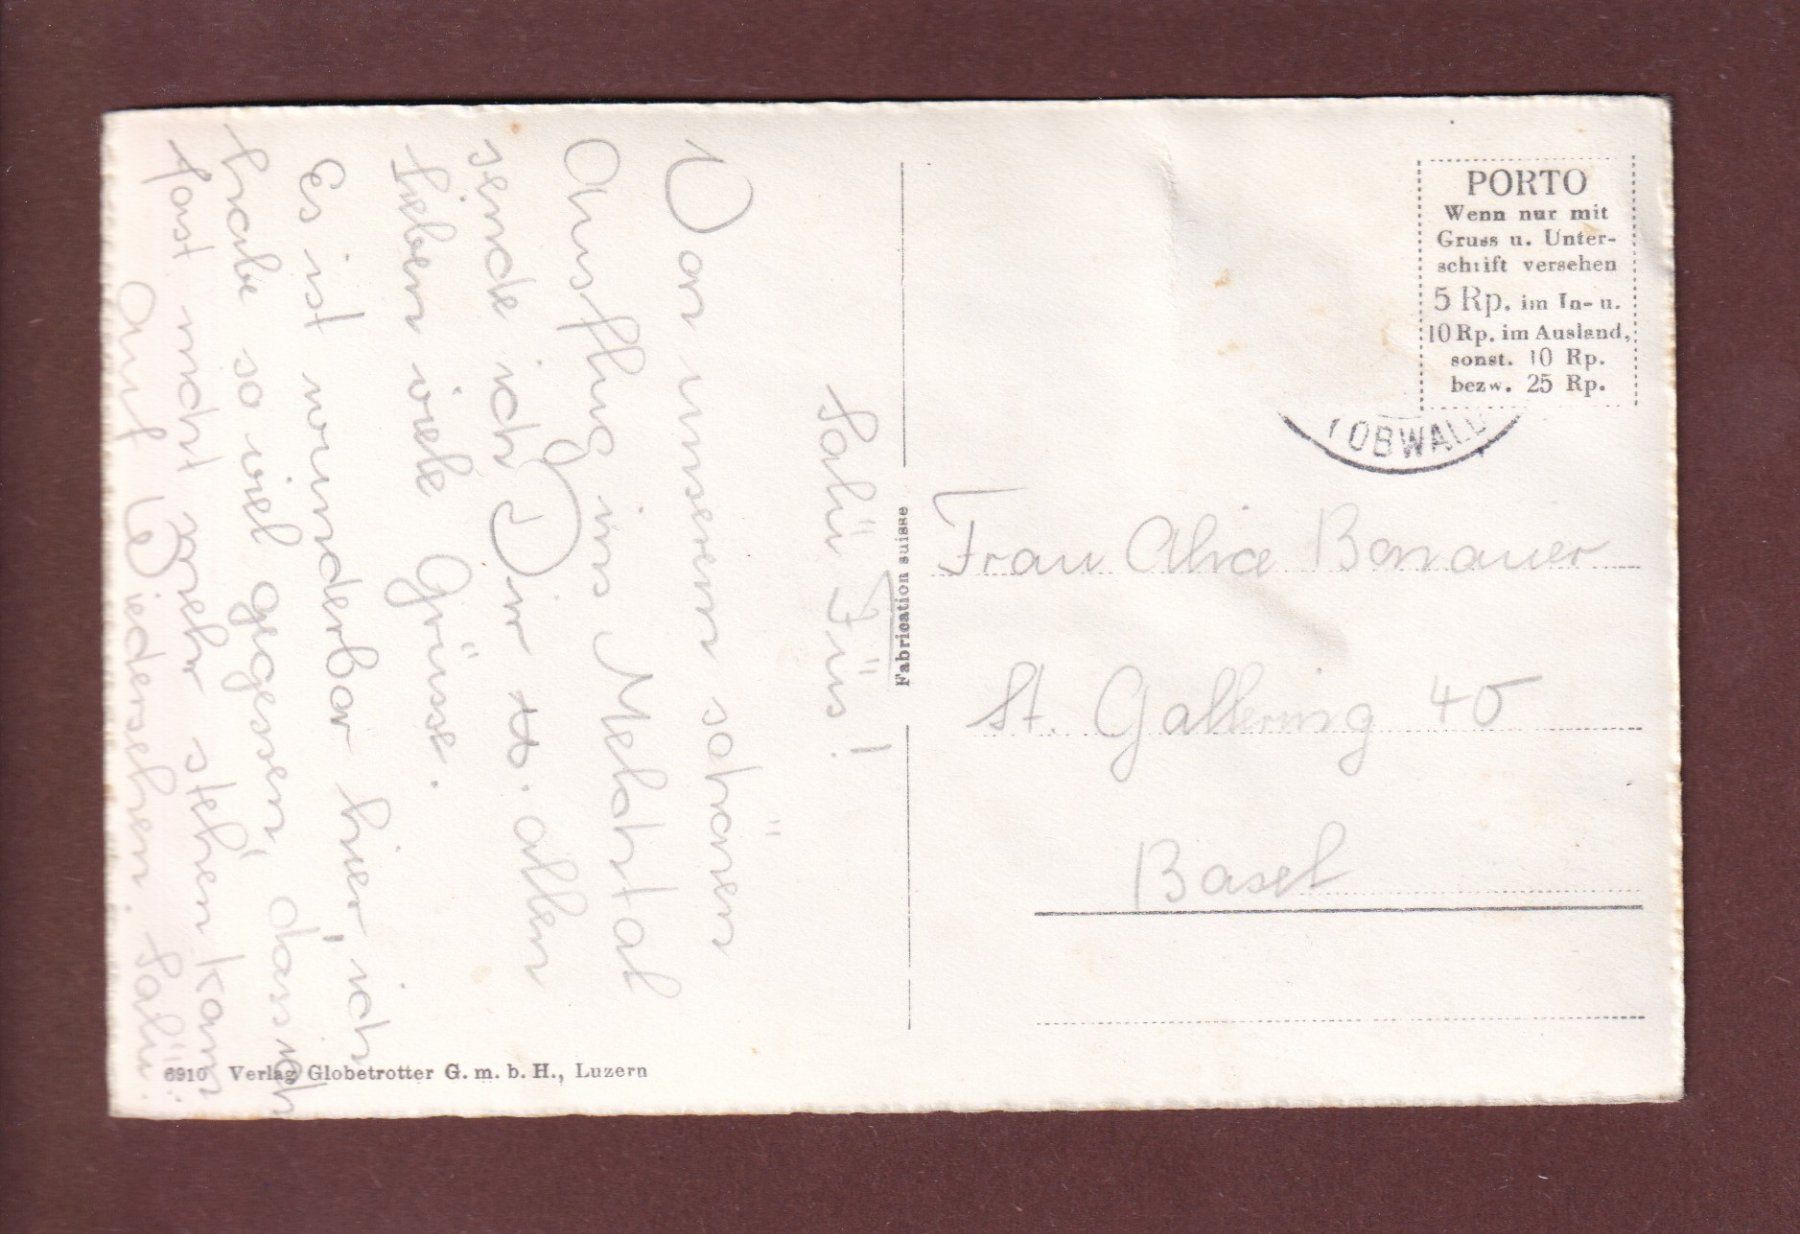 Salü Züs!
Von unserem schönen
Ausflug ins Melchtal
sende ich Dir u. allen
lieben viele Grüsse.
Es ist wunderbar hier, ich
habe so viel gegessen, dass ich
fast nicht mehr stehen kann
Auf Wiedersehen. Salü
Fabrication suisse
PORTO
Wenn nur mit
Gruss u. Unter-
schrift versehen
5 Rp. im In- u.
10 Rp. im Ausland,
sonst. 10 Rp.
bezw. 25 Rp.
(OBWALD
Frau Alice
St. Gallerring 45
Basel
6910 Verlag Globetrotter G. m. b. H., Luzern